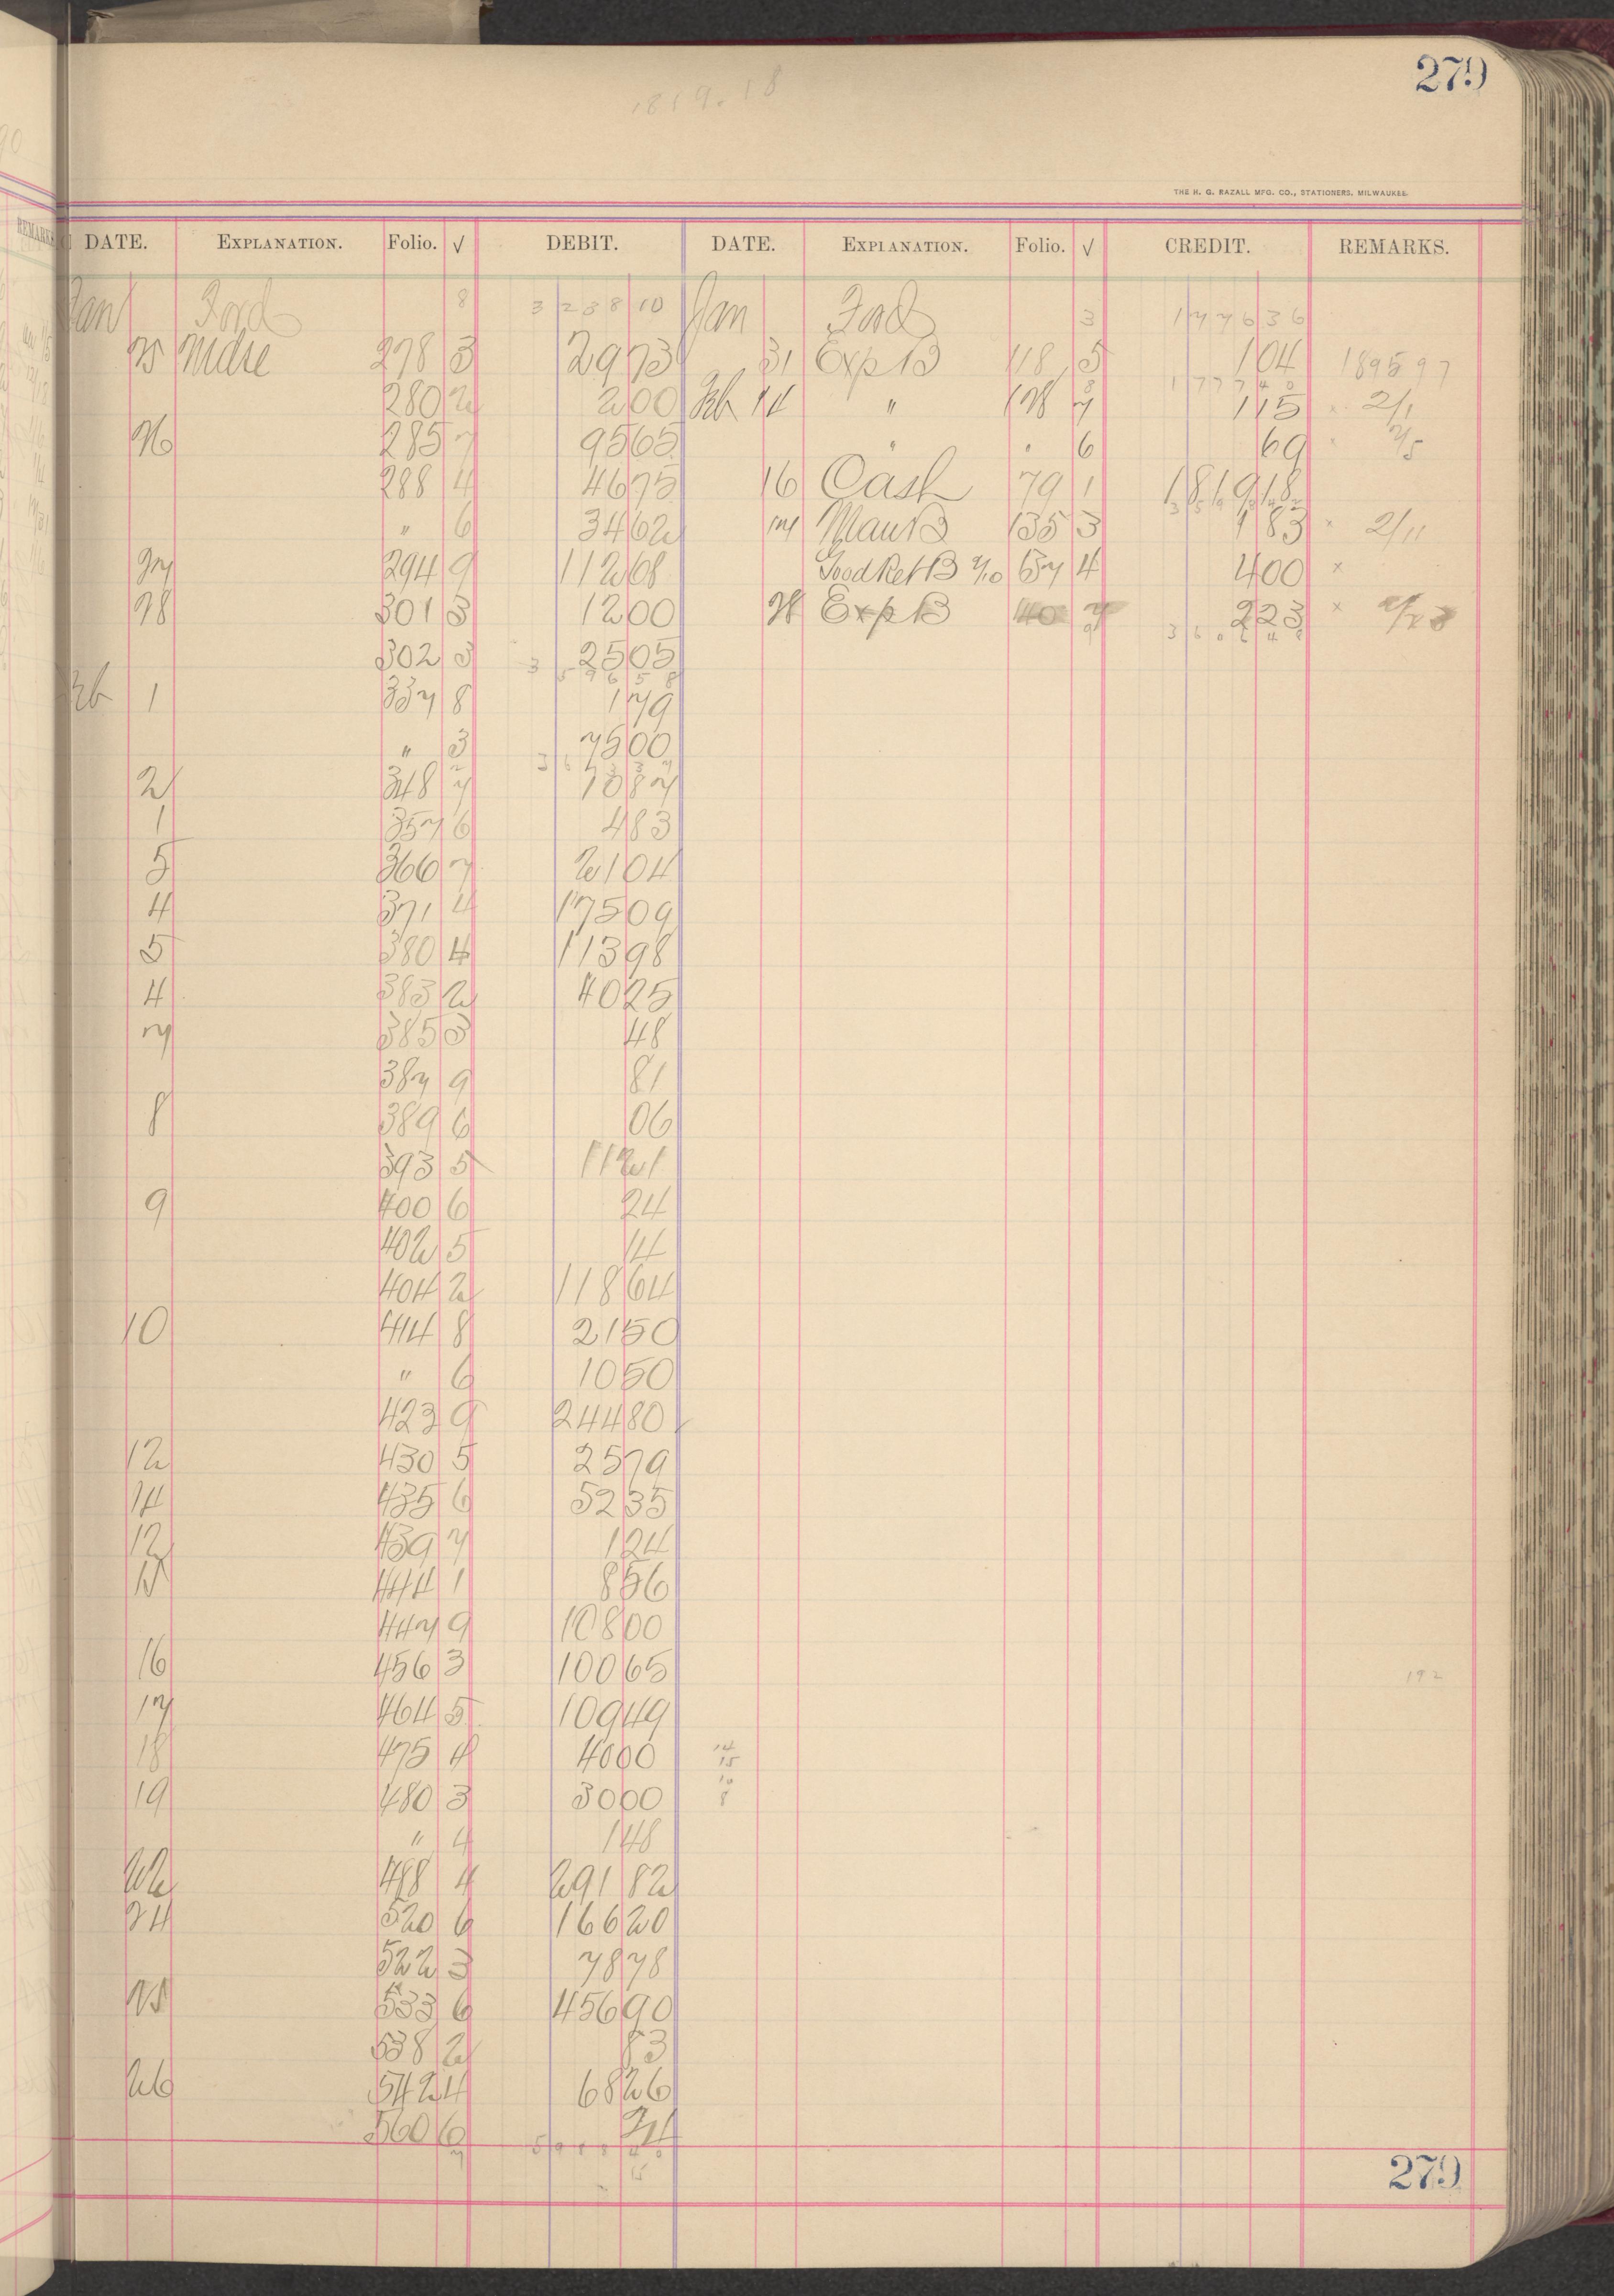 279
1819.18
THE H. G. RAZALL MFG. CO., STATIONERS, MILWAUKEE.
DATE. EXPLANATION. Folio. √ DEBIT. DATE. EXPLANATION. Folio. √ CREDIT. REMARKS.
Jan Ford 8 3238 10 Jan Ford 3 1776 36
25 Mdse 278 3 29 73 31 Exp B 118 5 1 04 1895 97
1777 40
280 2 2 00 Feb 14 " 128 7 1 15 × 2/1
26 285 7 95 65 " " 6 69 ×
288 4 46 75 16 Cash 79 1 1819 18
" 6 34 62 17 Manf B 135 3 1 83 × 2/11
27 294 9 112 68 Good Ret B 2/10 67 4 4 00 ×
28 301 3 12 00 28 Exp B 140 7 2 23 ×
302 3 25 05
3596 58
Feb 1 337 8 1 79
" 3 75 00
2 348 7 10 87
1 357 6 4 83
5 366 7 21 04
4 371 4 175 09
5 380 4 113 98
4 383 2 40 25
7 385 3 48
387 9 81
8 389 6 06
393 5 11 21
9 400 6 24
402 5 14
404 2 118 64
10 414 8 21 50
" 6 10 50
423 9 244 80
12 430 5 25 79
14 435 6 52 35
12 439 7 1 24
15 444 1 8 56
447 9 108 00
16 456 3 100 65
192
17 464 5 109 49
18 475 4 40 00 14
15
10
19 480 3 30 00 8
" 4 1 48
22 488 4 291 82
24 520 6 166 20
522 3 78 78
25 533 6 456 90
538 2 83
26 542 4 68 26
560 6 34
279